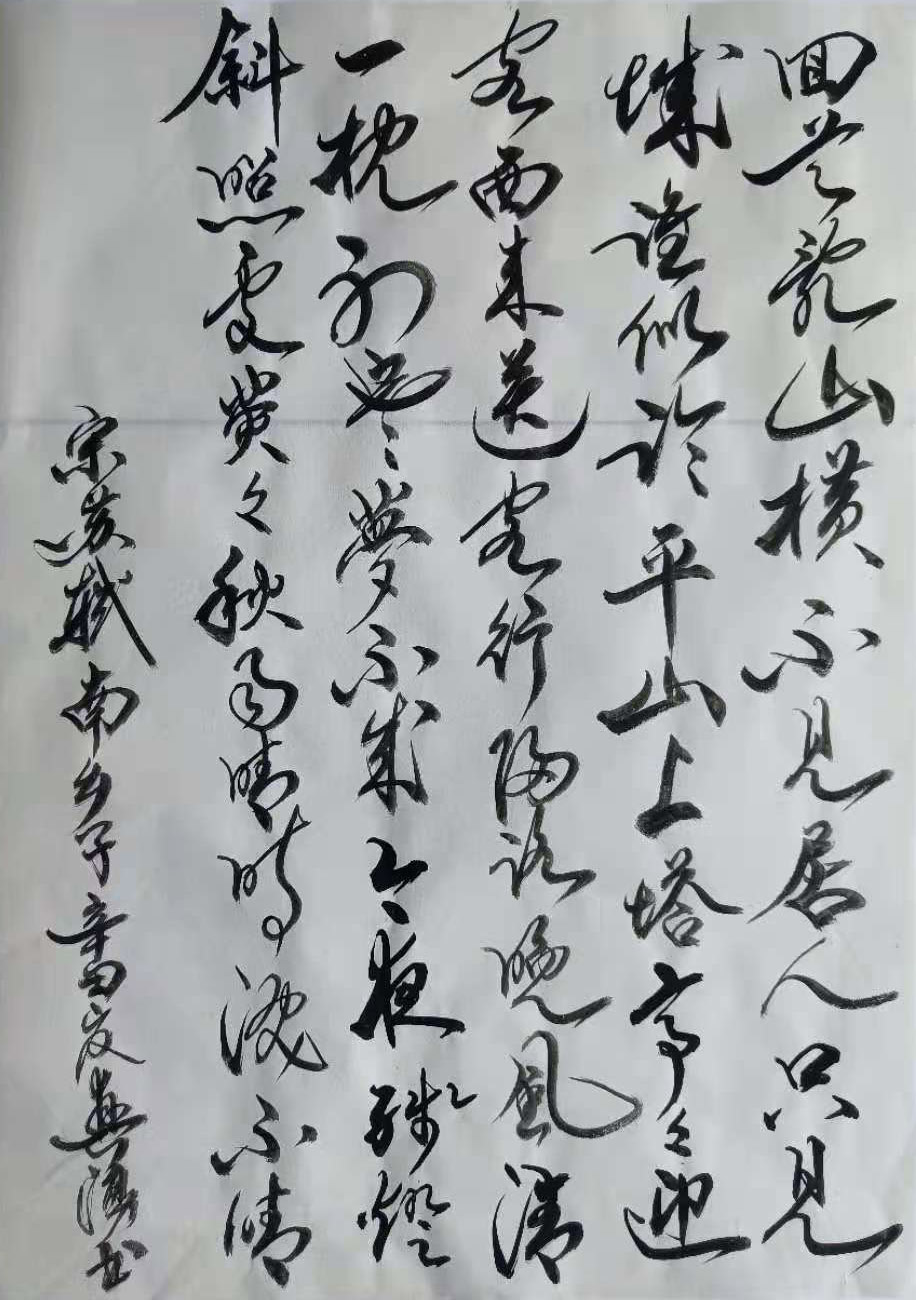 回首亂山橫不見居人只見
城誰似臨平山上塔亭々迎
客西来送客行歸路晚風清
一枕初寒夢不成今夜殘燈
斜照處熒々秋雨晴時淚不晴
宋苏轼南乡子書